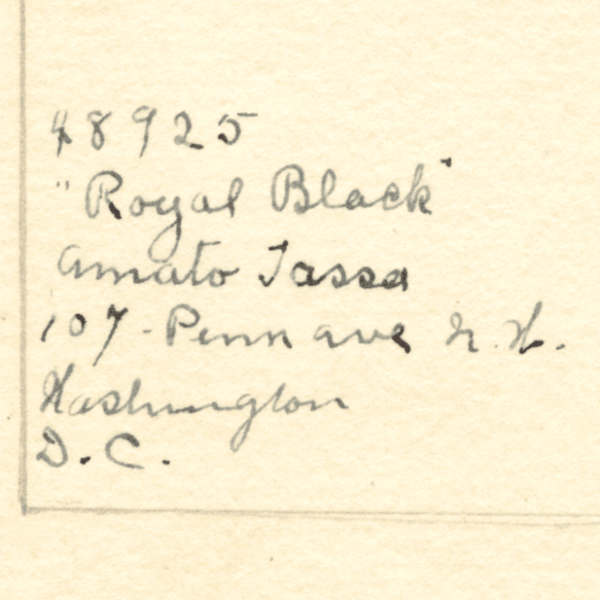 48925
"Royal Black"
Amato Tassa
107-Penn ave N.W.
Washington
D.C.